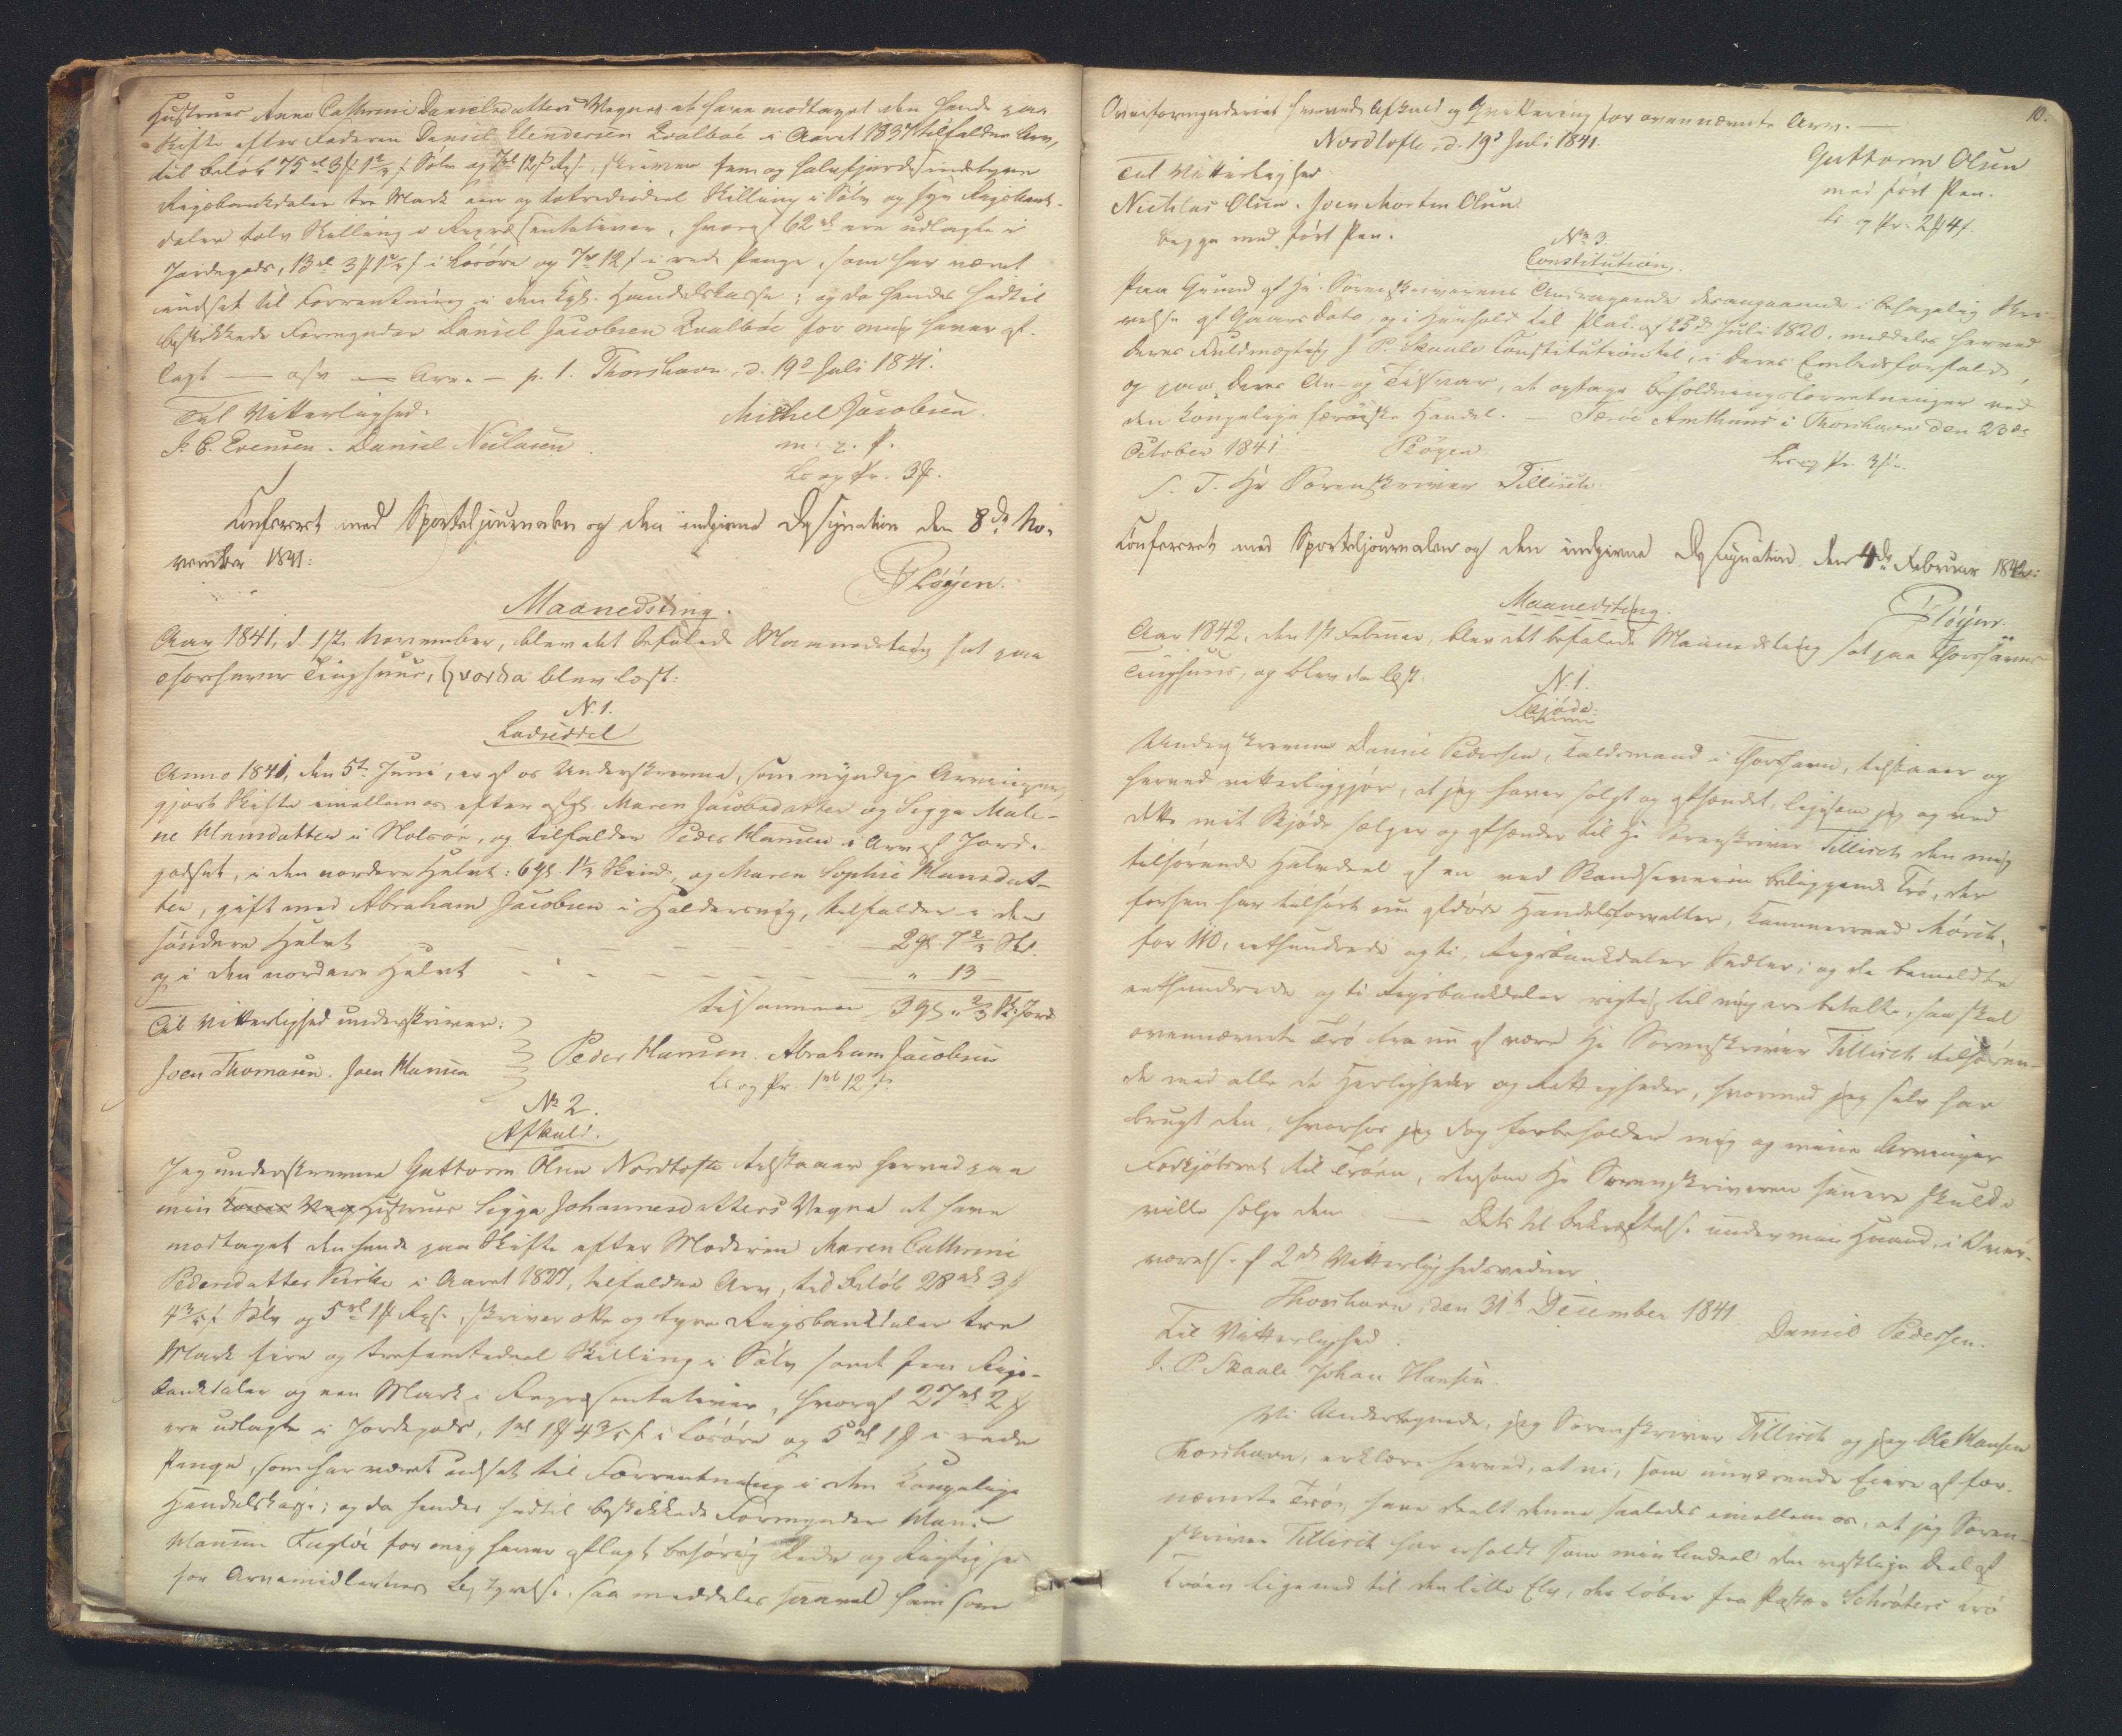 Hustrues Anne Cathrine Danielsdatters Vegne at have modtaget den hende paa
Skifte efter Faderen Daniel Elendersen Qvalböe i Aaret 1837 tilfaldne Arv,
til Beløb 75 rd 3 # 1 1/2 s Sølv og 7 rd 12 s Rgs., skriver fem og halvfjerdsindstyve
Rigsbankdaler tre Mark een og Skilling i Sølv og syv Rigsbank-
daler tolv Skilling i Repræsentativer, hvoraf 62 rd ere udlagte i
Jordegods, 13 rd 3 # 1 1/2 s i Løsøre og 7 rd 12 s i rede Penge, som har været
indsat til Forrentning i den Kgl. Handelskasse; og da hendes hidtil
beskikkede Formynder Daniel Jacobsen Qvalböe for mig haver af-
lagt — osv — Arv. — p. t. Thorshavn, d. 19d Juli 1841.
Til Vitterlighed. Michel Jacobsen.
J. C. Evensen. Daniel Niclasen. m. f. P.
Ls og Pr. 3 #.
Confereret med Sporteljournalen og den indgivne Designation den 8de No-
vember 1841:
Pløyen.
Maanedsting.
Aar 1841, d. 1ste November, blev det befalede Maanedsting sat paa
Thorshavns Tinghuus, hvorda blev læst:
N. 1.
Lodseddel
Anno 1841, den 5te Juni, er af os Underskrevne, som myndige Arvinger,
gjort Skifte imellem os efter afg. Maren Jacobsdatter og Sigga Male-
ne Hansdatter i Nolsöe, og tilfalder Peder Hansen i Arv af Jord-
godset, i den nordere Halvt: 6 gl. 1 1/3 Skind, og Maren Sophie Hansdat-
ter, gift med Abraham Jacobsen i Haldersvig, tilfalder i den
søndere Halvt 2 gl. 7 2/3 Sk.
og i den nordere Halvt " 13 —
tilsammen 3 gl. " 2/3 Sk. Jord
Til Vitterlighed underskriver:
Joen Thomasen. Joen Hansen Peder Hansen. Abraham Jacobsen
Ls og Pr. 1 rd 12 s.
No 2.
Afkald.
Jeg underskrevne Guttorm Olsen Nordtofte tilstaaer herved paa
min Hustrues Sigga Johannesdatters Vegne at have
modtaget den hende paa Skifte efter Moderen Maren Cathrine
Pedersdatter i Aaret 1827, tilfaldne Arv, til Beløb 28 rd 3 #
4 3/5 s Sølv og 5 rd 1 # Rgs., skriver otte og tyve Rigsbankdaler tre
Mark fire og trefemtedeel Skilling i Sølv samt fem Rigs-
bankdaler og een Mark i Repræsentativer, hvoraf 27 rd 2 #
ere udlagte i Jordegods, 1 rd 1 # 4 3/5 s i Løsøre og 5 rd 1 # i rede
Penge, som har været indsat til Forrentning i den Kongelige
Handelskasse; og da hendes hidtil beskikkede Formynder Hans
Hansen Fuglöe for mig haver aflagt behörig Rede og Rigtighed
for Arvemidlernes Bestyrelse, saa meddeles saavel ham som
10.
Overformynderiet herved Afkald og Qvittering for ovennævnte Arv. —
Nordtofte, d. 19d Juli 1841.
Til Vitterlighed. Guttorm Olsen
Nicklas Olsen. Joen Morten Olsen. med ført Pen.
begge med ført Pen. Ls. og Pr. 2 # 4 s.
No 3.
Constitution.
Paa Grund af Hr. Sorenskriverens Andragende desangaaende i behagelig Skri-
velse af Gaars Dato, og i Henhold til Plac. af 25de Juli 1820, meddeles herved
Deres Fuldmægtig J. P. Skaale Constitution til, i Deres Embedsforfald,
og paa Deres An- og Tilsvar, at optage Beholdningsforretninger ved
den kongelige færøiske Handel. — Færöe Amthuus i Thorshavn den 23de
October 1841. Pløyen. Ls og Pr. 3 #.
S. T. Hr Sorenskriver Tillisch.
Confereret med Sporteljournalen og den indgivne Designation den 4de Februar 1842:
Pløyen.
Maanedsting.
Aar 1842, den 1ste Februar, blev det befalede Maanedsting sat paa Thorshavns
Tinghuus, og blev da læst:
N. 1.
Skjöde.
Underskrevne Daniel Pedersen, Kaldsmand i Thorshavn, tilstaaer og
herved vitterliggjør, at jeg haver solgt og afhændet, ligesom jeg og ved
dette mit Skjøde sælger og afhænder til Hr Sorenskriver Tillisch den mig
tilhørende Halvdeel af en ved Skandseveien beliggende Trö, der
forhen har tilhørt nu afdøde Handelsforvalter, Kammerraad Mörch,
for 110, eethundrede og ti, Rigsbankdaler Sedler; og da bemeldte
eethundrede og ti Rigsbankdaler rigtig til mig ere betalte, saa skal
ovennævnte Trö fra nu af være Hr Sorenskriver Tillisch tilhøren-
de med alle de Herligheder og Rettigheder, hvormed jeg selv har
brugt den, hvorhos jeg dog forbeholder mig og mine Arvinger
Forkjøbsret til Tröen, dersom Hr Sorenskriveren senere skulde
ville sælge den. — Dets til Bekræftelse under min Haand, i Over-
værelse af 2de Vitterlighedsvidner.
Thorshavn, den 31te December 1841.
Til Vitterlighed. Daniel Pedersen.
J. P. Skaale. Johan Hansen.
Vi Undertegnede, jeg Sorenskriver Tillisch og jeg Ole Hansen
Thorshavn, erklære herved, at vi, som nuværende Eiere af for-
nævnte Tröe, have deelt denne saaledes imellem os, at jeg Soren-
skriver Tillisch har erholdt som min Andeel den vestlige Deel af
Tröen lige ned til den lille Elv, der løber fra Pastor Schröters Trö